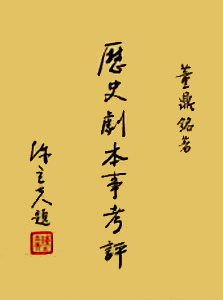 董鼎銘著
歷史劇本事考評
陳立夫題